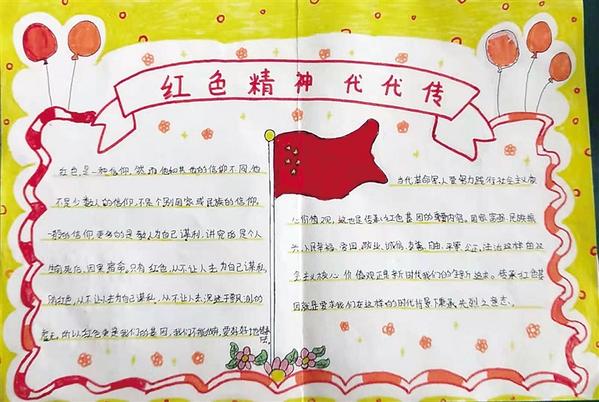 红色精神代代传
红色,是一种信仰,然而他和其他的信仰不同,他
不是少数人的信仰,不是个别国家或民族的信仰,
一般的信仰更多的是教人为自己谋利,讲究的是个人
生前死后,因果宿命。只有红色,从不让人去为自己谋私,
而红色,从不让人去为自己谋私,从不让人沉迷于
虚无,所以红色是我们的基因,我们不能忘,要好好地继承
当代革命军人要努力践行社会主义核
心价值观,这也是传承红色基因的重要内容。国家富强、民族振
兴、人民幸福、爱国、敬业、诚信、友善、自由、平等、公正、法治这样的社
会主义核心价值观正是新时代我们的追求。传承红色基
因就是要求我们在这样的时代背景下秉承先烈之意志。